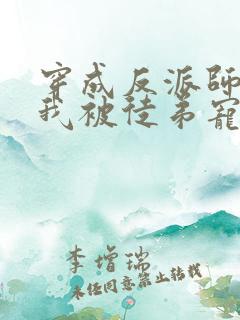 穿成反派師
我被徒弟寵
李增瑞
未经同意禁止转载